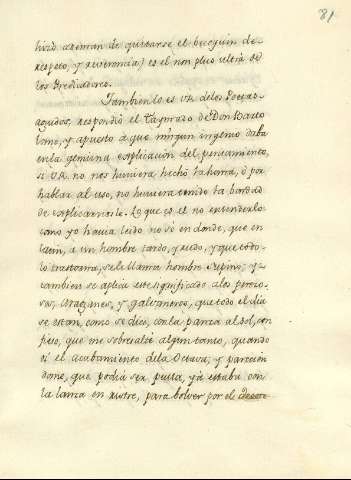 81
hizo ademan de quitarse el becoquin de
respeto, y reverencia) es el non plus ultra de
los Predicadores.
Tambien lo es VR. delos Poetas
agudos, respondió el Taymado de Don Barto
lome, y apuesto a que ningun ingenio daba
en la genuina explicacion del pensamiento,
si VR. no nos huviera hecho ahora, ó por
hablar al uso, no huviera tenido la bondad
de explicarnosle. Lo que es el no entenderlo
como yo havia leido no sé en donde, que en
latin, a un hombre tardo, y rudo, y que todo
lo trastorna, se le llama hombre supino; y
tambien se aplica este significado a los perezo-
sos, araganes, y galvaneros, que todo el dia
se estan, como se dice, con la panza al sol, con
fieso, que me sobresalté algun tanto, quando
oí el acabamiento dela Octava; y pareciendome,
que podia ser pulla, yà estaba con
la lanza en ristre, para bolver por el